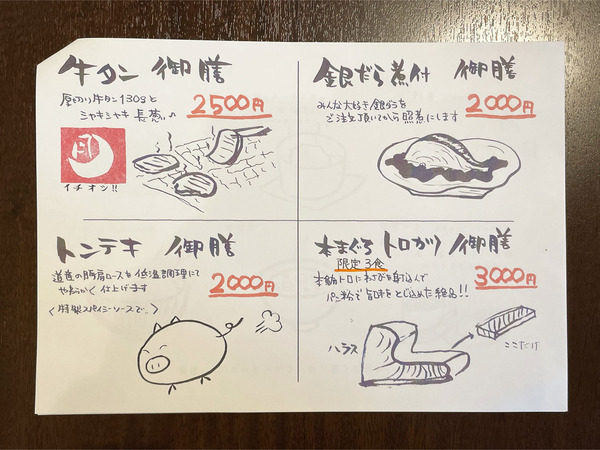 牛タン 御膳
厚切り牛タン130gと
シャキシャキ 長葱♪
2500円
イチオシ!!
銀だら煮付 御膳
みんな大好き銀だらを
ご注文頂いてから照煮にします
2000円
トンテキ 御膳
道産の豚肩ロースを低温調理にて
やわらかく仕上げます
2000円
〈特製スパイシーソースで…〉
本まぐろ トロカツ 御膳
限定3食
本鮪トロにわさびを射込んで
パン粉で旨味をとじ込めた絶品!!
3000円
ハラス
ここだけ